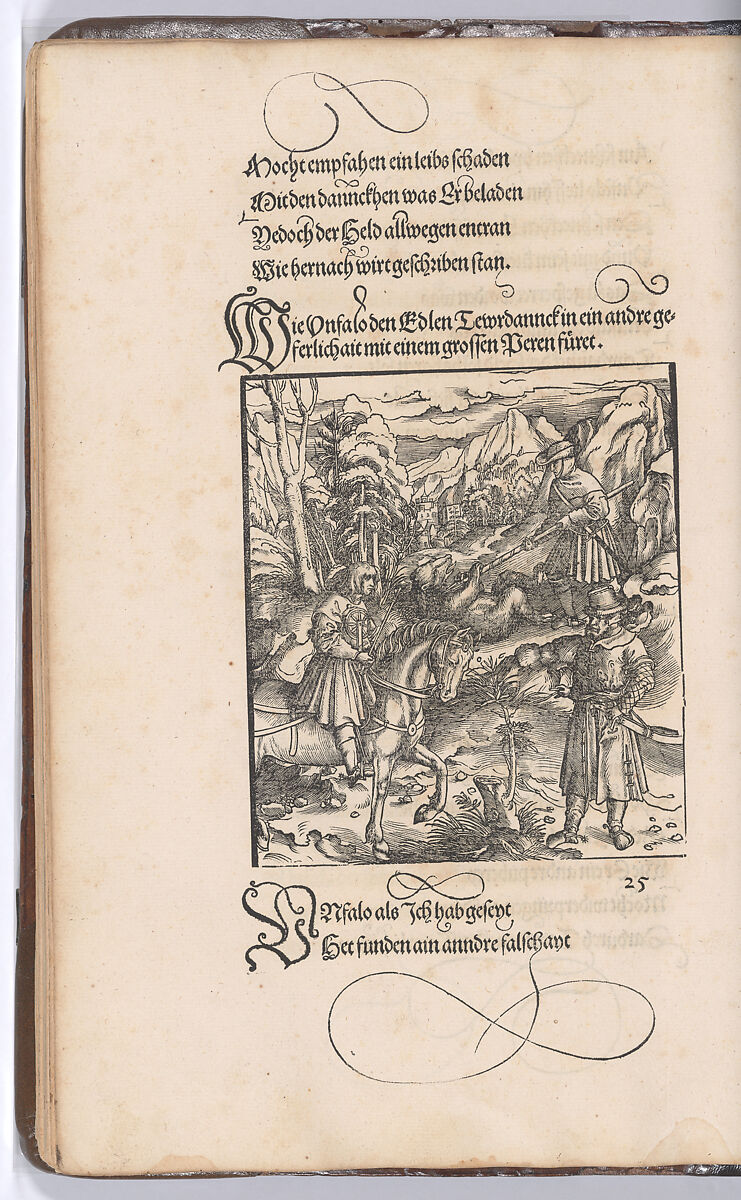 Mocht empfahen ein leibs schaden
Mit den dannckhen was Er beladen
Yedoch der Held allwegen entran
Wie hernach wirt geschriben stan.
Wie Unfalo den Edlen Tewrdannck in ein andre ge-
ferlichait mit einem grossen Peren füret.
25
UNfalo als Ich hab geseyt
Het funden ain anndre falschayt